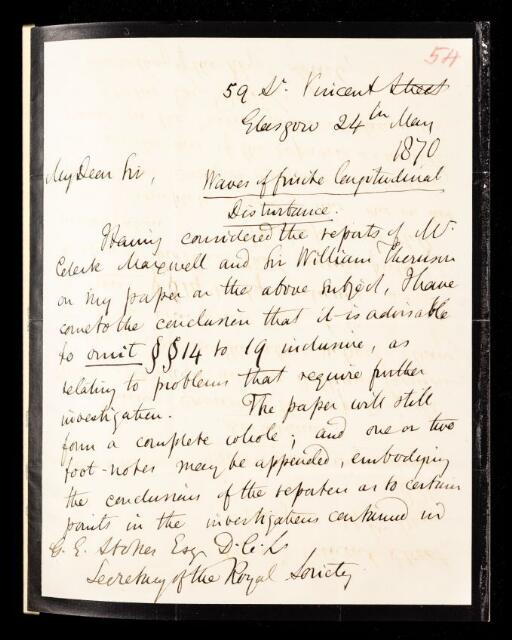 54
59 St. Vincent Street
Glasgow 24th May
1870
My Dear Sir,
Waves of finite longitudinal
Disturbance.
Having considered the reports of Mr.
Clerk Maxwell and Sir William Thomson
on my paper on the above subject, I have
come to the conclusion that it is advisable
to omit §§14 to 19 inclusive, as
relating to problems that require further
investigation. The paper will still
form a complete whole; and one or two
foot-notes may be appended, embodying
the conclusions of the reporters as to certain
points in the investigations contained in
G. G. Stokes Esq. D.C.L.
Secretary of the Royal Society